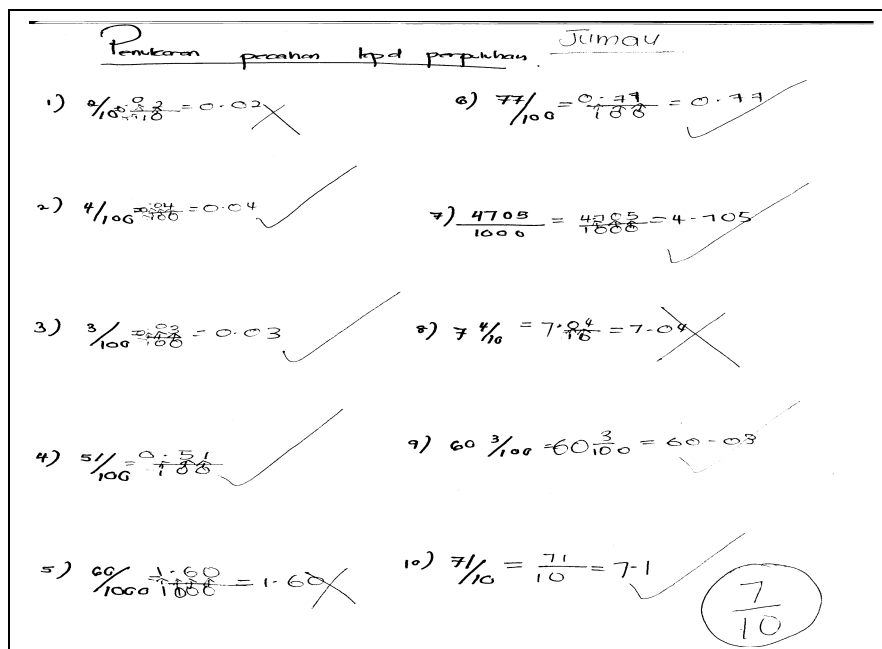 Penukaran pecahan kpd perpuluhan. Jumau
1) 2/10 = 0.02
2) 4/100 = 0.04/100 = 0.04
3) 3/100 = 0.03/100 = 0.03
4) 51/100 = 0.51/100
5) 60/1000 1.60/1000 = 1.60
6) 77/100 = 0.77/100 = 0.77
7) 4705/1000 = 4705/1000 = 4.705
8) 7 4/10 = 7.04/10 = 7.04
9) 60 3/100 = 60 3/100 = 60.03
10) 71/10 = 71/10 = 7.1
7/10